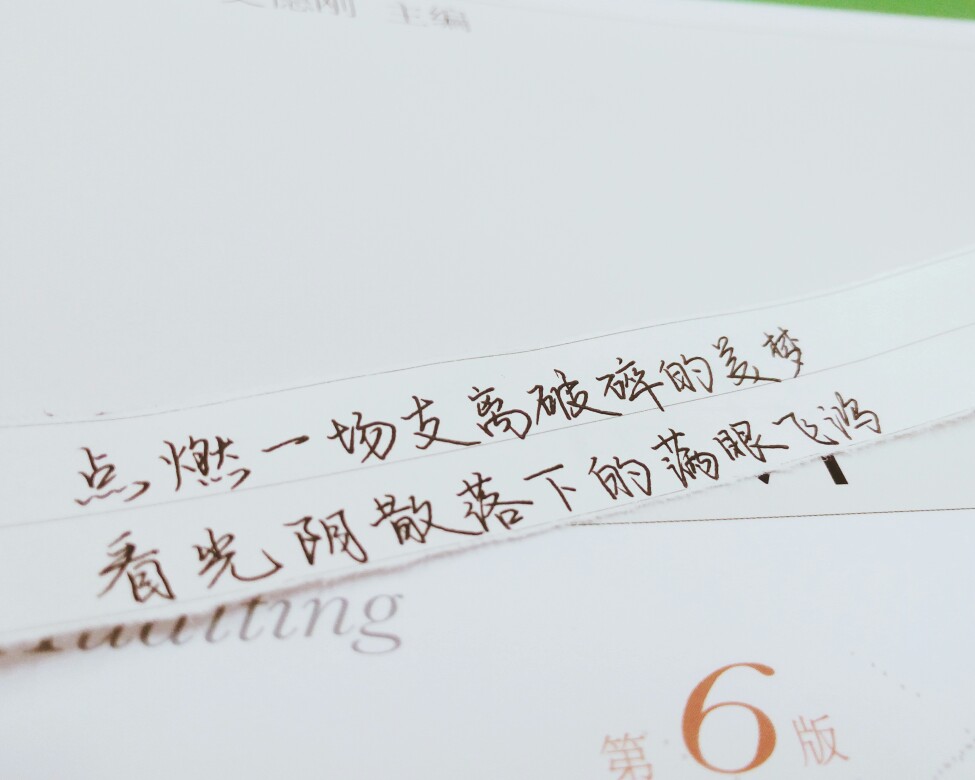 主编
点燃一场支离破碎的美梦
看光阴散落下的满眼飞鸿
第6版